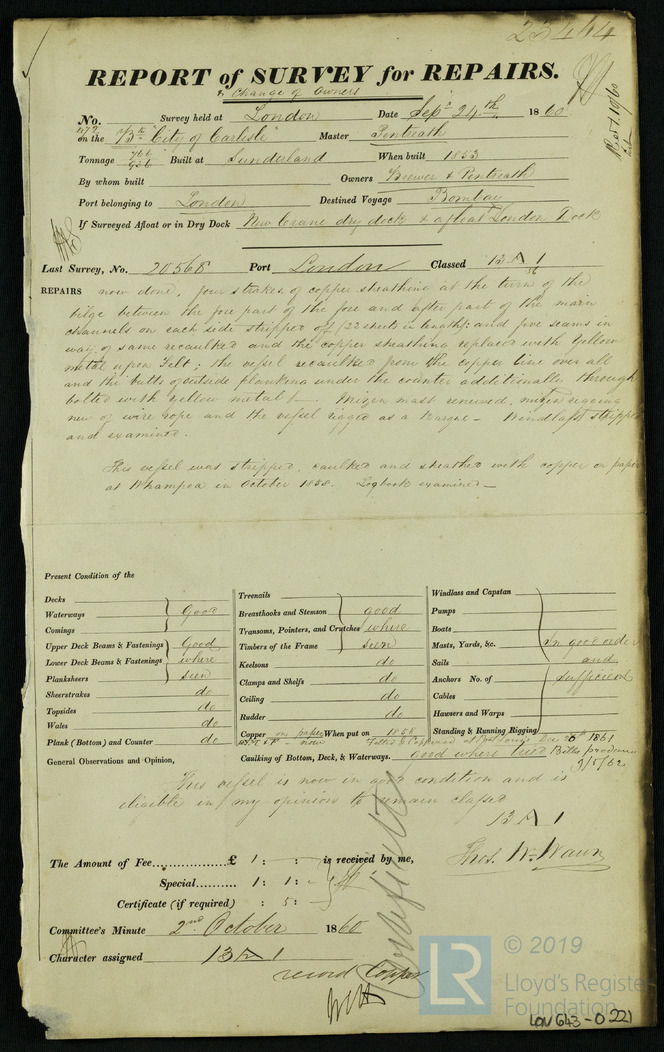 23444
REPORT of SURVEY for REPAIRS.
& Change of Owners
No. Survey held at London Date Sepr 24th 1860
on the "City of Carlisle" Master Penreath
Tonnage 766 926 Built at Sunderland When built 1853
By whom built Owners Brewer & Penreath
Port belonging to London Destined Voyage Bombay
If Surveyed Afloat or in Dry Dock New Crane dry dock & afloat London Dock
Last Survey, No. 20568 Port London Classed 13 A 1
REPAIRS now done, four strakes of copper sheathing at the turn of the
bilge between the fore part of the fore and after part of the main
channels on each side stripped off (22 sheets in length) and five seams in
way of same recaulked and the copper sheathing replaced with Yellow
metal upon Felt; the vessel recaulked from the copper line over all
and the butts of outside planking under the counter additionally through
bolted with yellow metal. Mizen mast renewed, mizen rigging
new of wire rope and the vessel rigged as a Barque – Windlass stripped
and examined.
This vessel was stripped, caulked and sheathed with copper on paper
at Whampoa in October 1858. Logbook examined –
Present Condition of the
Decks
Waterways Good
Comings
Upper Deck Beams & Fastenings Good
Lower Deck Beams & Fastenings where
Planksheers seen
Sheerstrakes do
Topsides do
Wales do
Plank (Bottom) and Counter do
Treenails
Breasthooks and Stemson good
Transoms, Pointers, and Crutches where
Timbers of the Frame seen
Keelsons do
Clamps and Shelfs do
Ceiling do
Rudder do
Copper on paper When put on 1858
Windlass and Capstan
Pumps
Boats
Masts, Yards, &c. In good order
Sails and
Anchors No. of sufficient
Cables
Hawsers and Warps
Standing & Running Rigging
General Observations and Opinion, Caulking of Bottom, Deck, & Waterways. good where tried Bills produced
9/5/62
This vessel is now in good condition and is
eligible in my opinion to remain classed
13 A 1
Thos. W. Wawn
The Amount of Fee £ 1 : : is received by me,
Special 1 : 1 : -
Certificate (if required) : 5 : -
Certificate
Committee's Minute 2nd October 1860
Character assigned 13 A 1
record Copper
© 2019
LR
Lloyd's Register
Foundation
LON 643-0221